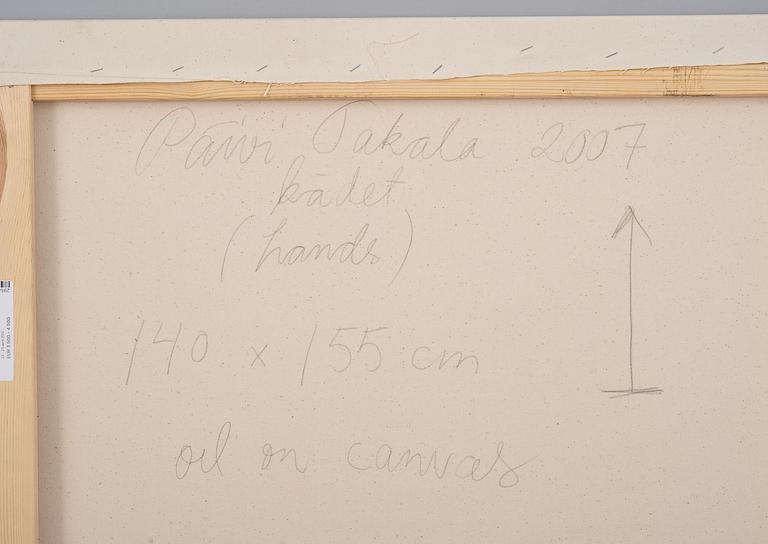 Päivi Takala 2007
kädet
(hands)
140 x 155 cm
oil on canvas